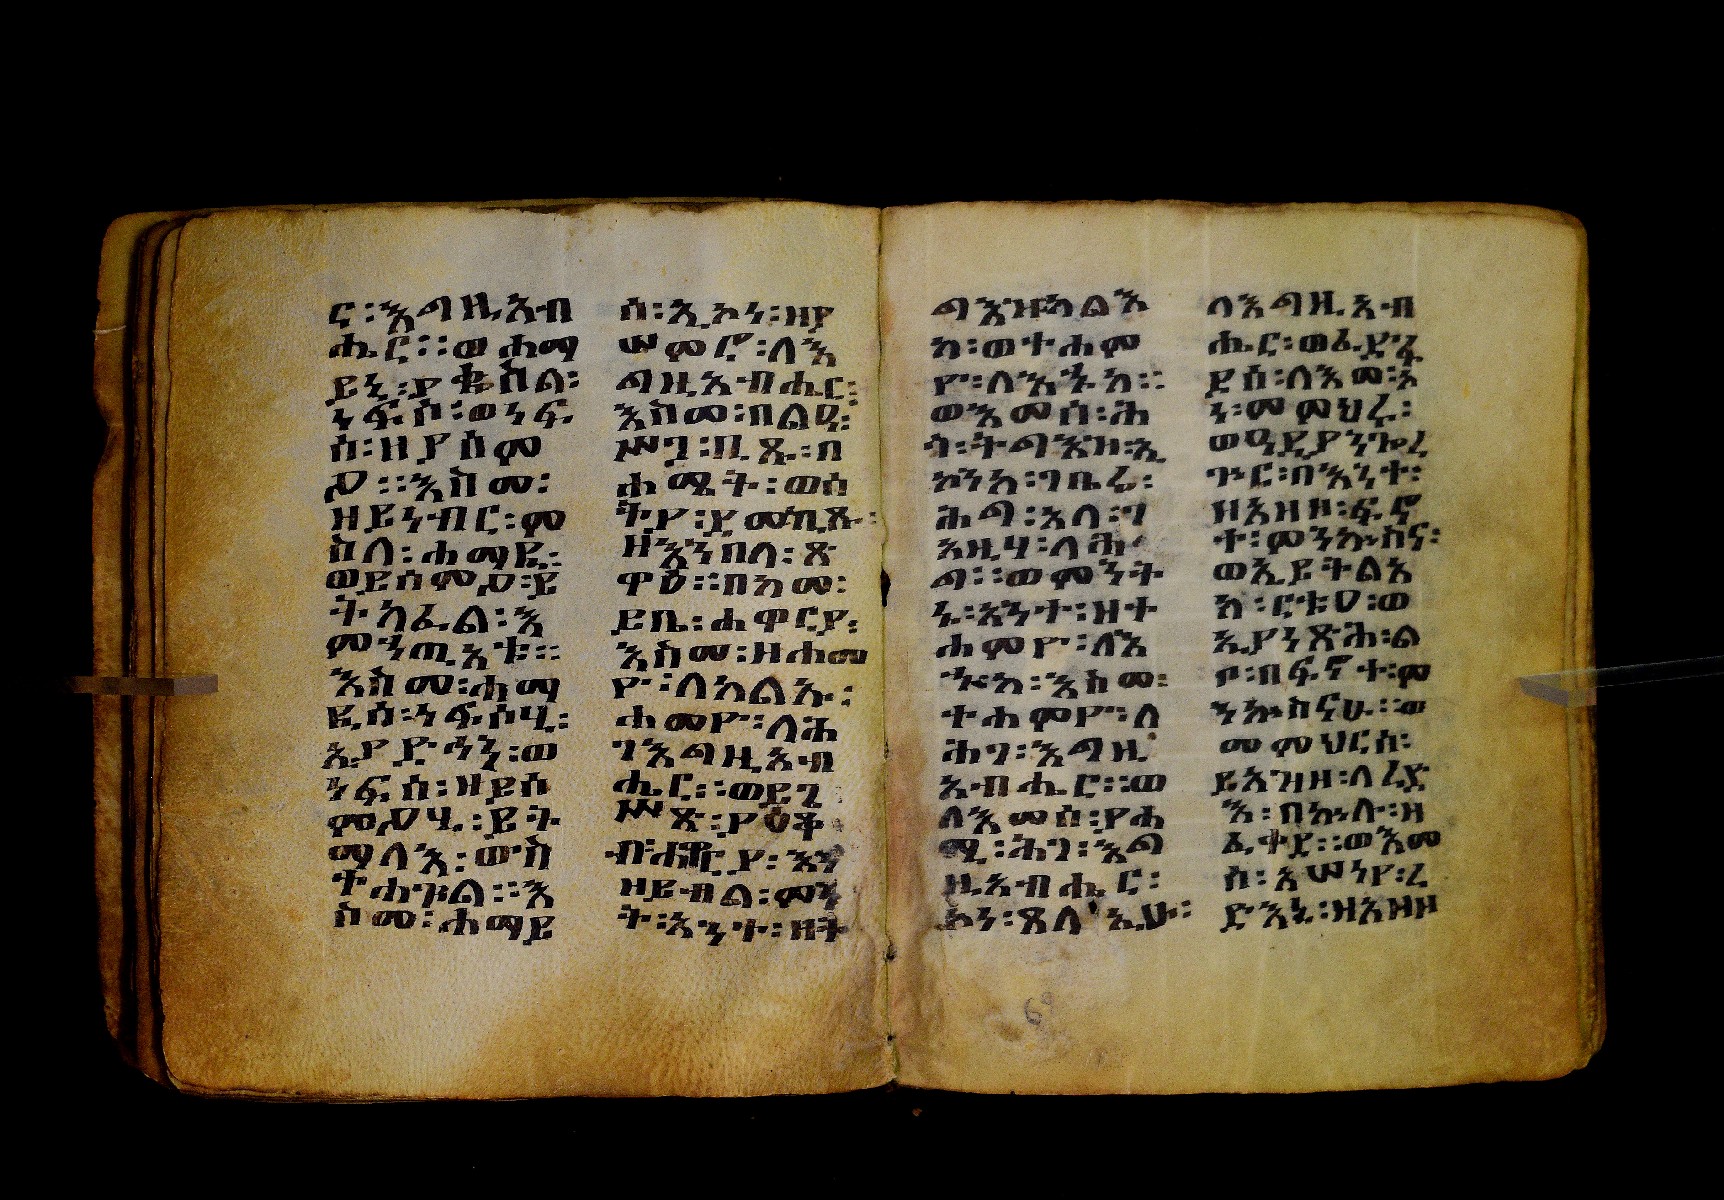 ር፡እግዚአብ
ሔር፡፡ወሐማ
ይኒ፡ያቄስል፡
ነፍሰ፡ወነፍ
ሰ፡ዘያሰም
ዖ፡፡እስመ፡
ዘይነብር፡ም
ስለ፡ሐማዪ፡
ወይሰምዖ፡ይ
ትካፈል፡እ
ምኀጢአቱ፡፡
እስመ፡ሐማ
ዪሰ፡ነፍሰሂ፡
ኢያድኅን፡ወ
ነፍሰ፡ዘይሰ
ምዖሂ፡ይት
ማለእ፡ውስ
ተሐጕል፡፡እ
ስመ፡ሐማይ
ሰ፡ኢኮነ፡ዘያ
ሠምሮ፡ለእ
ግዚአብሔር፡
እስመ፡በልዒ፡
ሥጋ፡ቢጹ፡በ
ሐሜት፡ወሰ
ትየ፡ደመ፡ቢጹ፡
ዘእንበለ፡ጽ
ዋዕ፡፡በከመ፡
ይቤ፡ሐዋርያ፡
እስመ፡ዘሐመ
የ፡ለካልኡ፡
ሐመዮ፡ለሕ
ገ፡እግዚአብ
ሔር፡፡ወይገ
ሥጽ፡ያዕቆ
ብ፡ሐዋርያ፡እን
ዘይብል፡ምን
ት፡አንተ፡ዘት
ግእዝ፡ካልእ
ከ፡ወተሐም
ዮ፡ለእኁከ፡፡
ወእመሰ፡ሕ
ገ፡ትግእዝ፡ኢ
ኮንከ፡ገባሬ፡
ሕግ፡አላ፡ገ
አዚሃ፡ለሕ
ግ፡፡ወምንት
ኑ፡አንተ፡ዘተ
ሐምዮ፡ለእ
ኁከ፡እስመ፡
ተሐምዮ፡ለ
ሕገ፡እግዚ
አብሔር፡፡ወ
ለእመሰ፡የሐ
ሚ፡ሕገ፡እግ
ዚአብሔር፡
ኮነ፡ጸላኢሁ፡
ለእግዚአብ
ሔር፡ወፈድፋ
ደሰ፡ለእመ፡ኮ
ነ፡መምህረ፡
ወዒደያንጐረ
ጕር፡በእንተ፡
ዘአዘዘ፡ፍኖ
ተ፡ምንኵስና፡
ወኢይትልአ
ክ፡ርቱዐ፡ወ
ኢያንጽሕ፡ል
ቦ፡በፍኖተ፡ም
ንኵስናሁ፡፡ወ
መምህርሰ፡
ይእዝዝ፡ለረድ
እ፡በኵሉ፡ዘ
ፈቀደ፡፡ወእመ
ሰ፡አሠነየ፡ረ
ድእ፡ኒ፡ዘአዘዘ